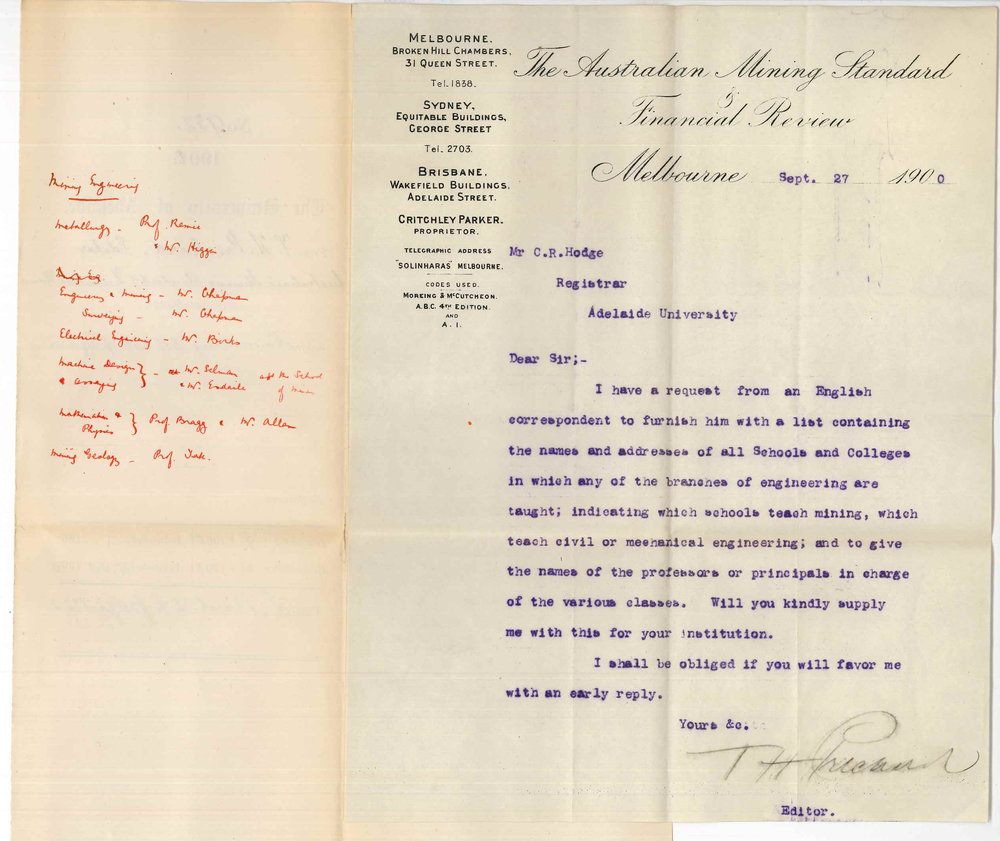 Mining Engineering
Metallurgy - Prof. Rennie
& Mr. Higgin
Engineering & Mining - Mr. Chapman
Surveying - Mr. Chapman
Electrical Engineering - Mr. Birks
Machine Design } - Mr. Selman at the School
& Assaying & Mr. Esdaile of Mines
Mathematics & } Prof Bragg & Mr. Allen
Physics
Mining Geology - Prof. Tate.
MELBOURNE.
BROKEN HILL CHAMBERS,
31 QUEEN STREET.
Tel. 1838.
SYDNEY,
EQUITABLE BUILDINGS,
GEORGE STREET
Tel. 2703.
BRISBANE.
WAKEFIELD BUILDINGS.
ADELAIDE STREET.
CRITCHLEY PARKER.
PROPRIETOR.
TELEGRAPHIC ADDRESS
"SOLINHARAS" MELBOURNE.
CODES USED.
MOREING & McCUTCHEON.
A.B.C. 4TH EDITION.
AND
A. I.
The Australian Mining Standard
&
Financial Review
Melbourne Sept. 27 1900
Mr C.R.Hodge
Registrar
Adelaide University
Dear Sir;-
I have a request from an English
correspondent to furnish him with a list containing
the names and addresses of all Schools and Colleges
in which any of the branches of engineering are
taught; indicating which schools teach mining, which
teach civil or mechanical engineering; and to give
the names of the professors or principals in charge
of the various classes. Will you kindly supply
me with this for your institution.
I shall be obliged if you will favor me
with an early reply.
Yours &c.
T H
Editor.